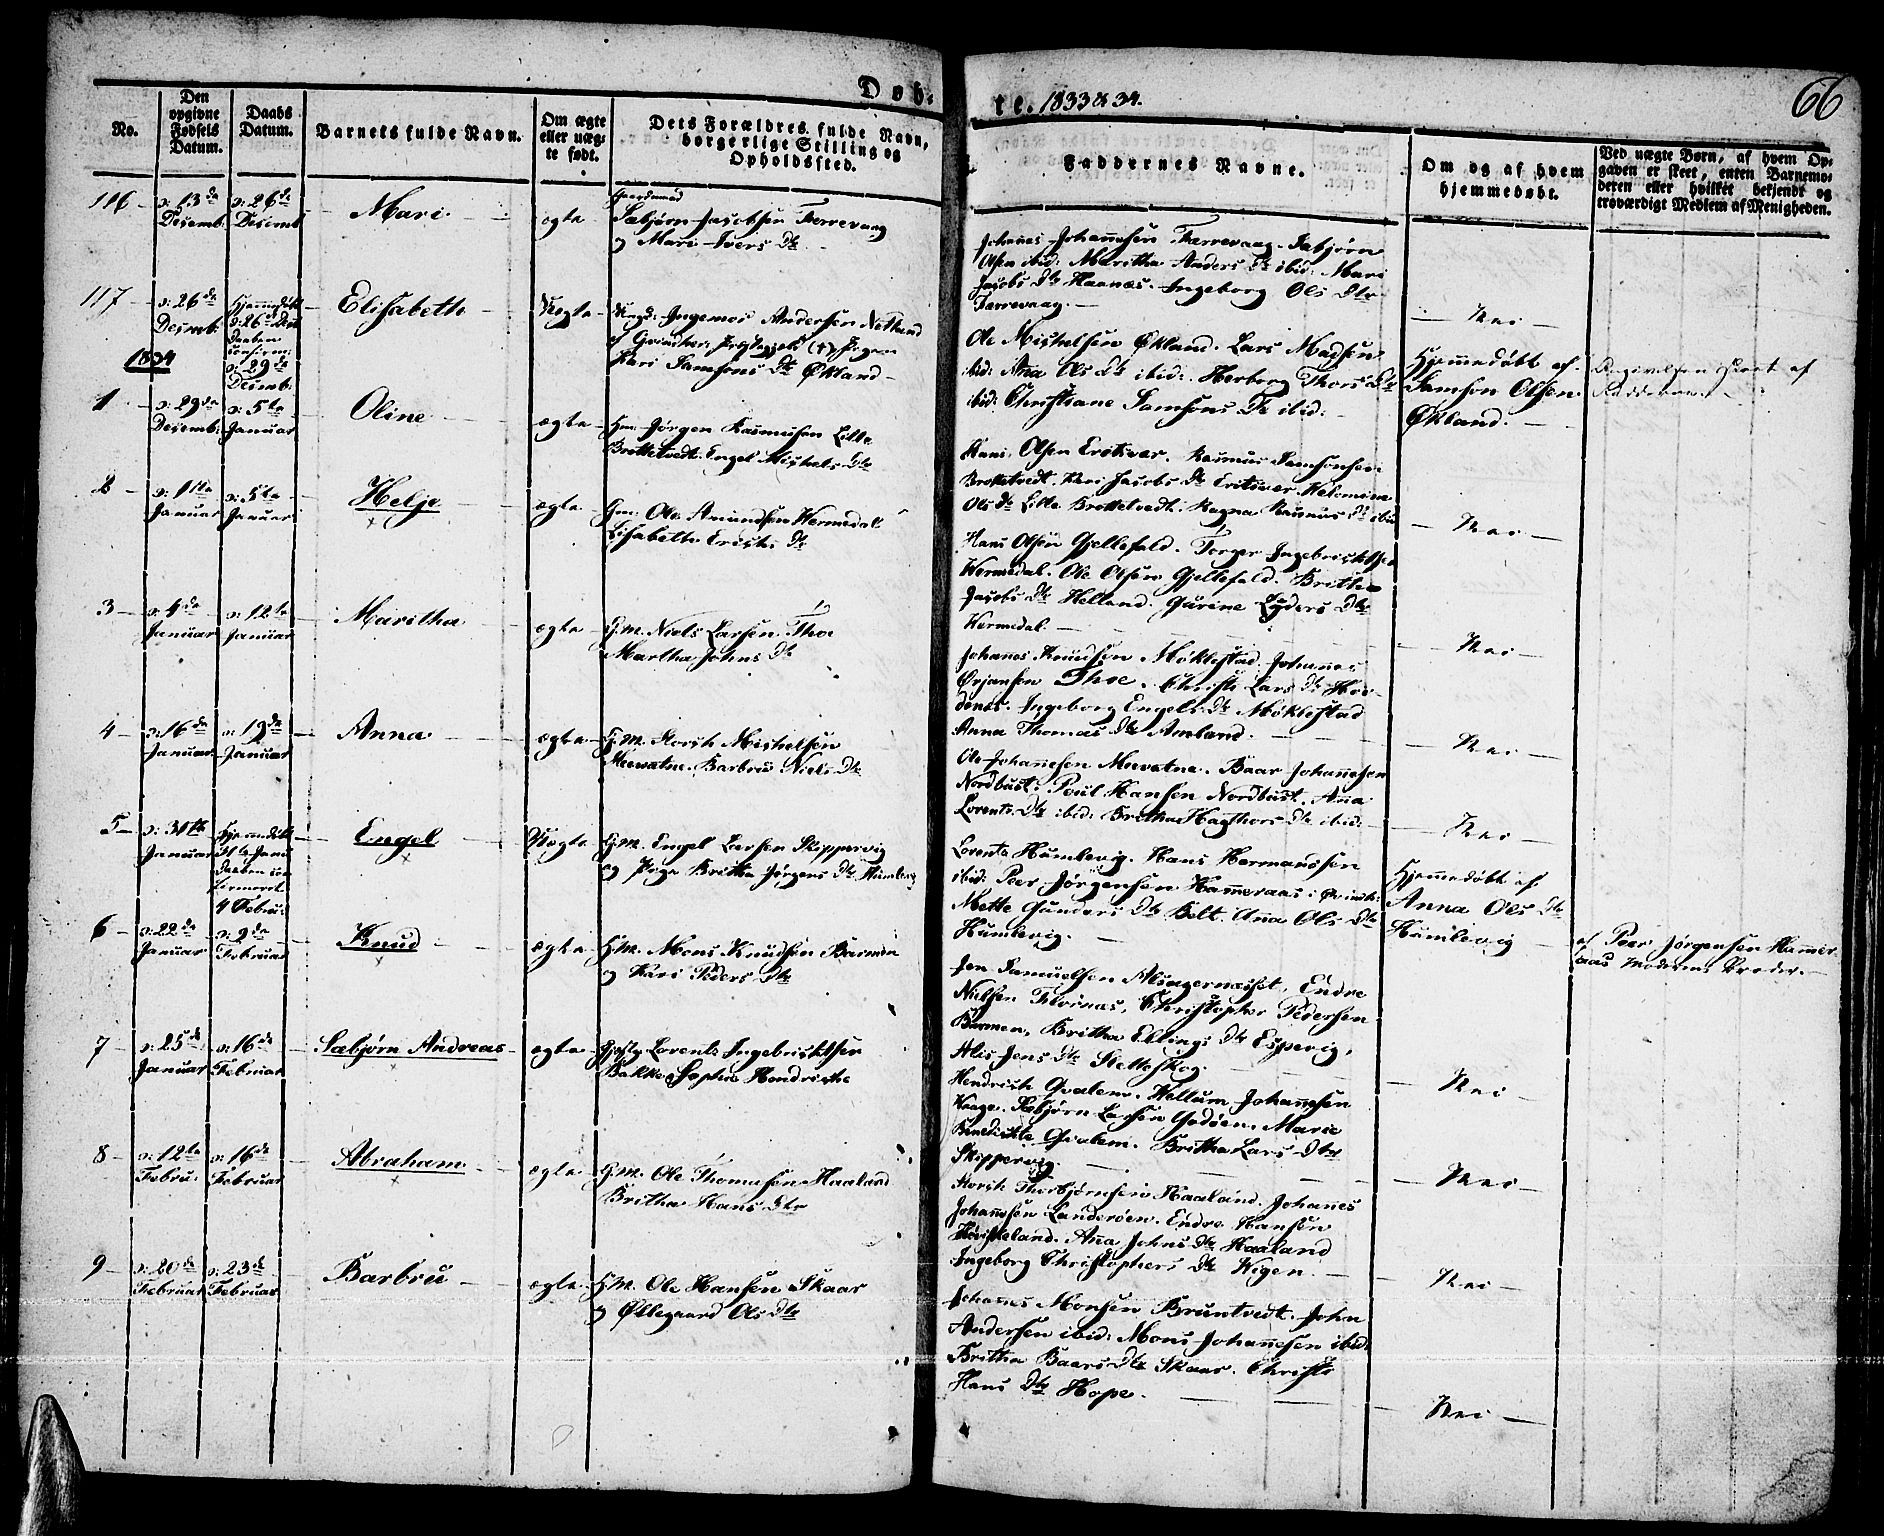 Døb-
te. 1833 & 34.
66
No.
Den opgivne Fødsels Datum.
Daabs Datum.
Barnets fulde Navn.
Om ægte eller uæg-te født.
Dets Forældres fulde Navn, borgerlige Stilling og Opholdssted.
Faddernes Navne.
Om og af hvem hjemmedøbt.
Ved uægte Børn, af hvem Op-gaven er skeet, enten Barnemo-deren eller hvilket bekjendt og troværdigt Medlem af Menigheden.
116
d: 13de Desemb:
d: 26de Desemb
Mari
ægta
Gaardmand
Sæbjørn Jacobsen Færrevaag
og Mari Ivers Dtr
Johannes Johannesen Færrevaag. Sæbjørn
Olsen ibid: Maritha Anders Dtr ibid: Mari
Jacobs Dtr Haanæs. Ingeborg Ols Dtr
Færrevaag.
Nei
117
d: 26de Desemb:
Hjemmedøbt
d: 26de Des
Daaben
confirm:
d: 29de
Desemb:
Elisabeth
Uægta
Ungd: Ingemor Andersen Netland
Kari Samsons Dtr Økland
Ole Mishelsen Økland. Lars Madsen
ibid: Ana Ols Dtr ibid: Herborg Thors Dtr
ibid: Christiane Samsons Dtr ibid:
Hjemmedøbt af
Samson Olsen
Økland.
Angivelsen skeet af
Fadderne
1834
1
d: 29de Desemb:
d: 5te Januar
Oline
ægta
Hm: Jørgen Rasmusen Lille
Brottetvedt. Engel Mishels Dtr
Hans Olsen Erstivær. Rasmus Samsonsen
Brottetvedt. Kari Jacobs Dtr Eritsvær Helemine
Ols Dtr Lille Brottetvedt. Ragna Rasmus Dtr ibid
Nei
2
d: 1ste Januar
d: 5te Januar
Helje
ægta
Gm: Ole Amundsen Wermedal
Lisabeth Erichs Dtr
Hans Olsen Gjellefald. Torger Ingebrichtsen
Wermedal. Ole Olsen Gjellefald. Brithe
Jacobs Dtr Helland. Gurine Lyders Dtr
Wermedal
Nei
3
d: 4de Januar
d: 12te Januar
Maritha
ægta
G.M. Niels Larsen Thoe
Martha Johns Dtr
Johannes Knudsen Møklestad. Johannes
Ørjansen Thoe. Christi Lars Dtr Hor-
denes. Ingeborg Engels Dtr Møklestad
Anna Thomas Dtr Amland.
Nei
4
d: 16de Januar
d: 19de Januar
Anna
ægta
G.M. Korsth Mishelsen
Mevatne. Barbru Niels Dtr
Ole Johannesen Mevatne. Baar Johannesen
Nordbust. Poul Hansen Nordbust. Ana
Lorents Dtr ibid: Britha Hagthors Dtr ibid:
Nei
5
d: 31te Januar
Hjemmedøbt
31te Janu
Daaben con
firmeret
4 Febru:
Engel
Uægta
G.M. Engel Larsen Skippervig
og Pige Britha Jørgens Dtr Humlevig
Lorents Humlevig. Hans Hermansen
ibid: Peer Jørgensen Hameraas:
Mette Gunders Dtr Belt. Ana Ols Dtr
Humlevig.
Hjemmedøbt af
Anna Ols Dtr
Humlevig
af Peer Jørgensen Hammer-
aas Moderens Broder.
6
d: 22de Januar
d: 9de Februar
Knud
ægta
H.M. Mons Knudsen Barmen
og Kari Peders Dtr
Jon Samuelsen Alsagernæsset, Endre
Nielsen Flornæs, Christopher Pedersen
Barmen, Britha Ellings Dtr Espevig,
Alis Jens Dtr Sletteskog.
Nei
7
d: 25de Januar
d: 16de Februar
Sæbjørn Andreas
ægta
Lorents Ingebrichtsen
Bakke. Sophia Hendrichs
Hendrich Qvalem. Hellum Johannesen
Waage. Sæbjørn Larsen Godøen. Marie
Benedichte Qvalem. Britha Lars Dtr
Skippervig
Nei
8
d: 12te Febru:
d: 16de Februar
Abraham
ægta
G.M. Ole Thomasen Haaland
Britha Hans Dtr
Korsth Thorbjørnsen Haaland. Johannes
Johannesen Landerøen. Endre Hansen
Ana Johns Dtr Haaland
Ingeborg Christophers Dtr Wigen.
Nei
9
d: 20de Februar
d: 23de Februar
Barbru
ægta
H.M. Ole Hansen Skaar
og Øllegaard Ols Dtr
Johannes Monsen Bruntvedt. John
Andersen ibid: Mons Johannesen ibid:
Britha Baars Dtr Skaar. Christi
Hans Dtr Hope.
Nei